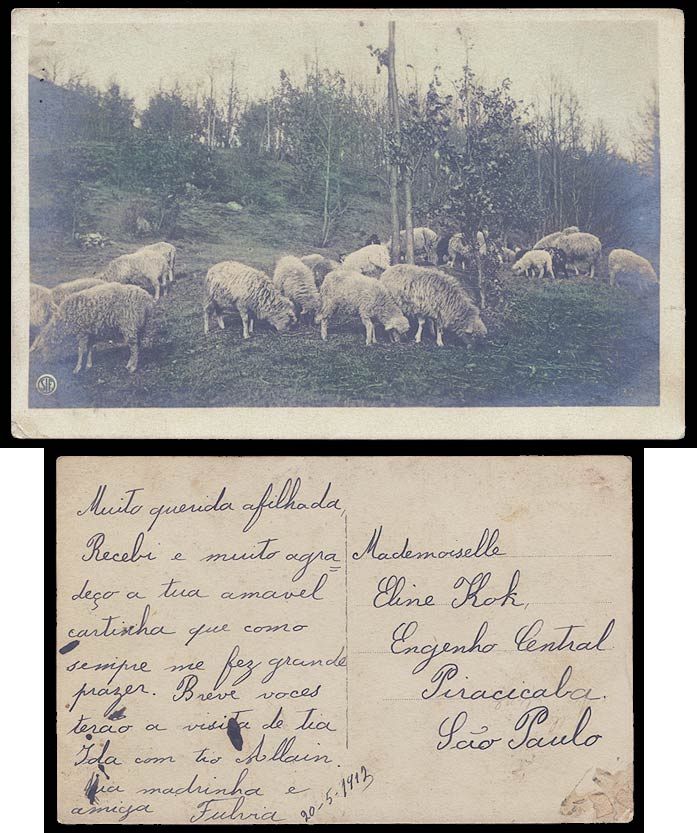 Muito querida afilhada,
Recebi e muito agra=
deço a tua amavel
cartinha que como
sempre me fez grande
prazer. Breve voces
terão a visita de tia
Ida com tio Allain.
Tua madrinha e
amiga Fulvia
20-5-1912
Mademoiselle
Eline Kok,
Engenho Central
Piracicaba.
São Paulo